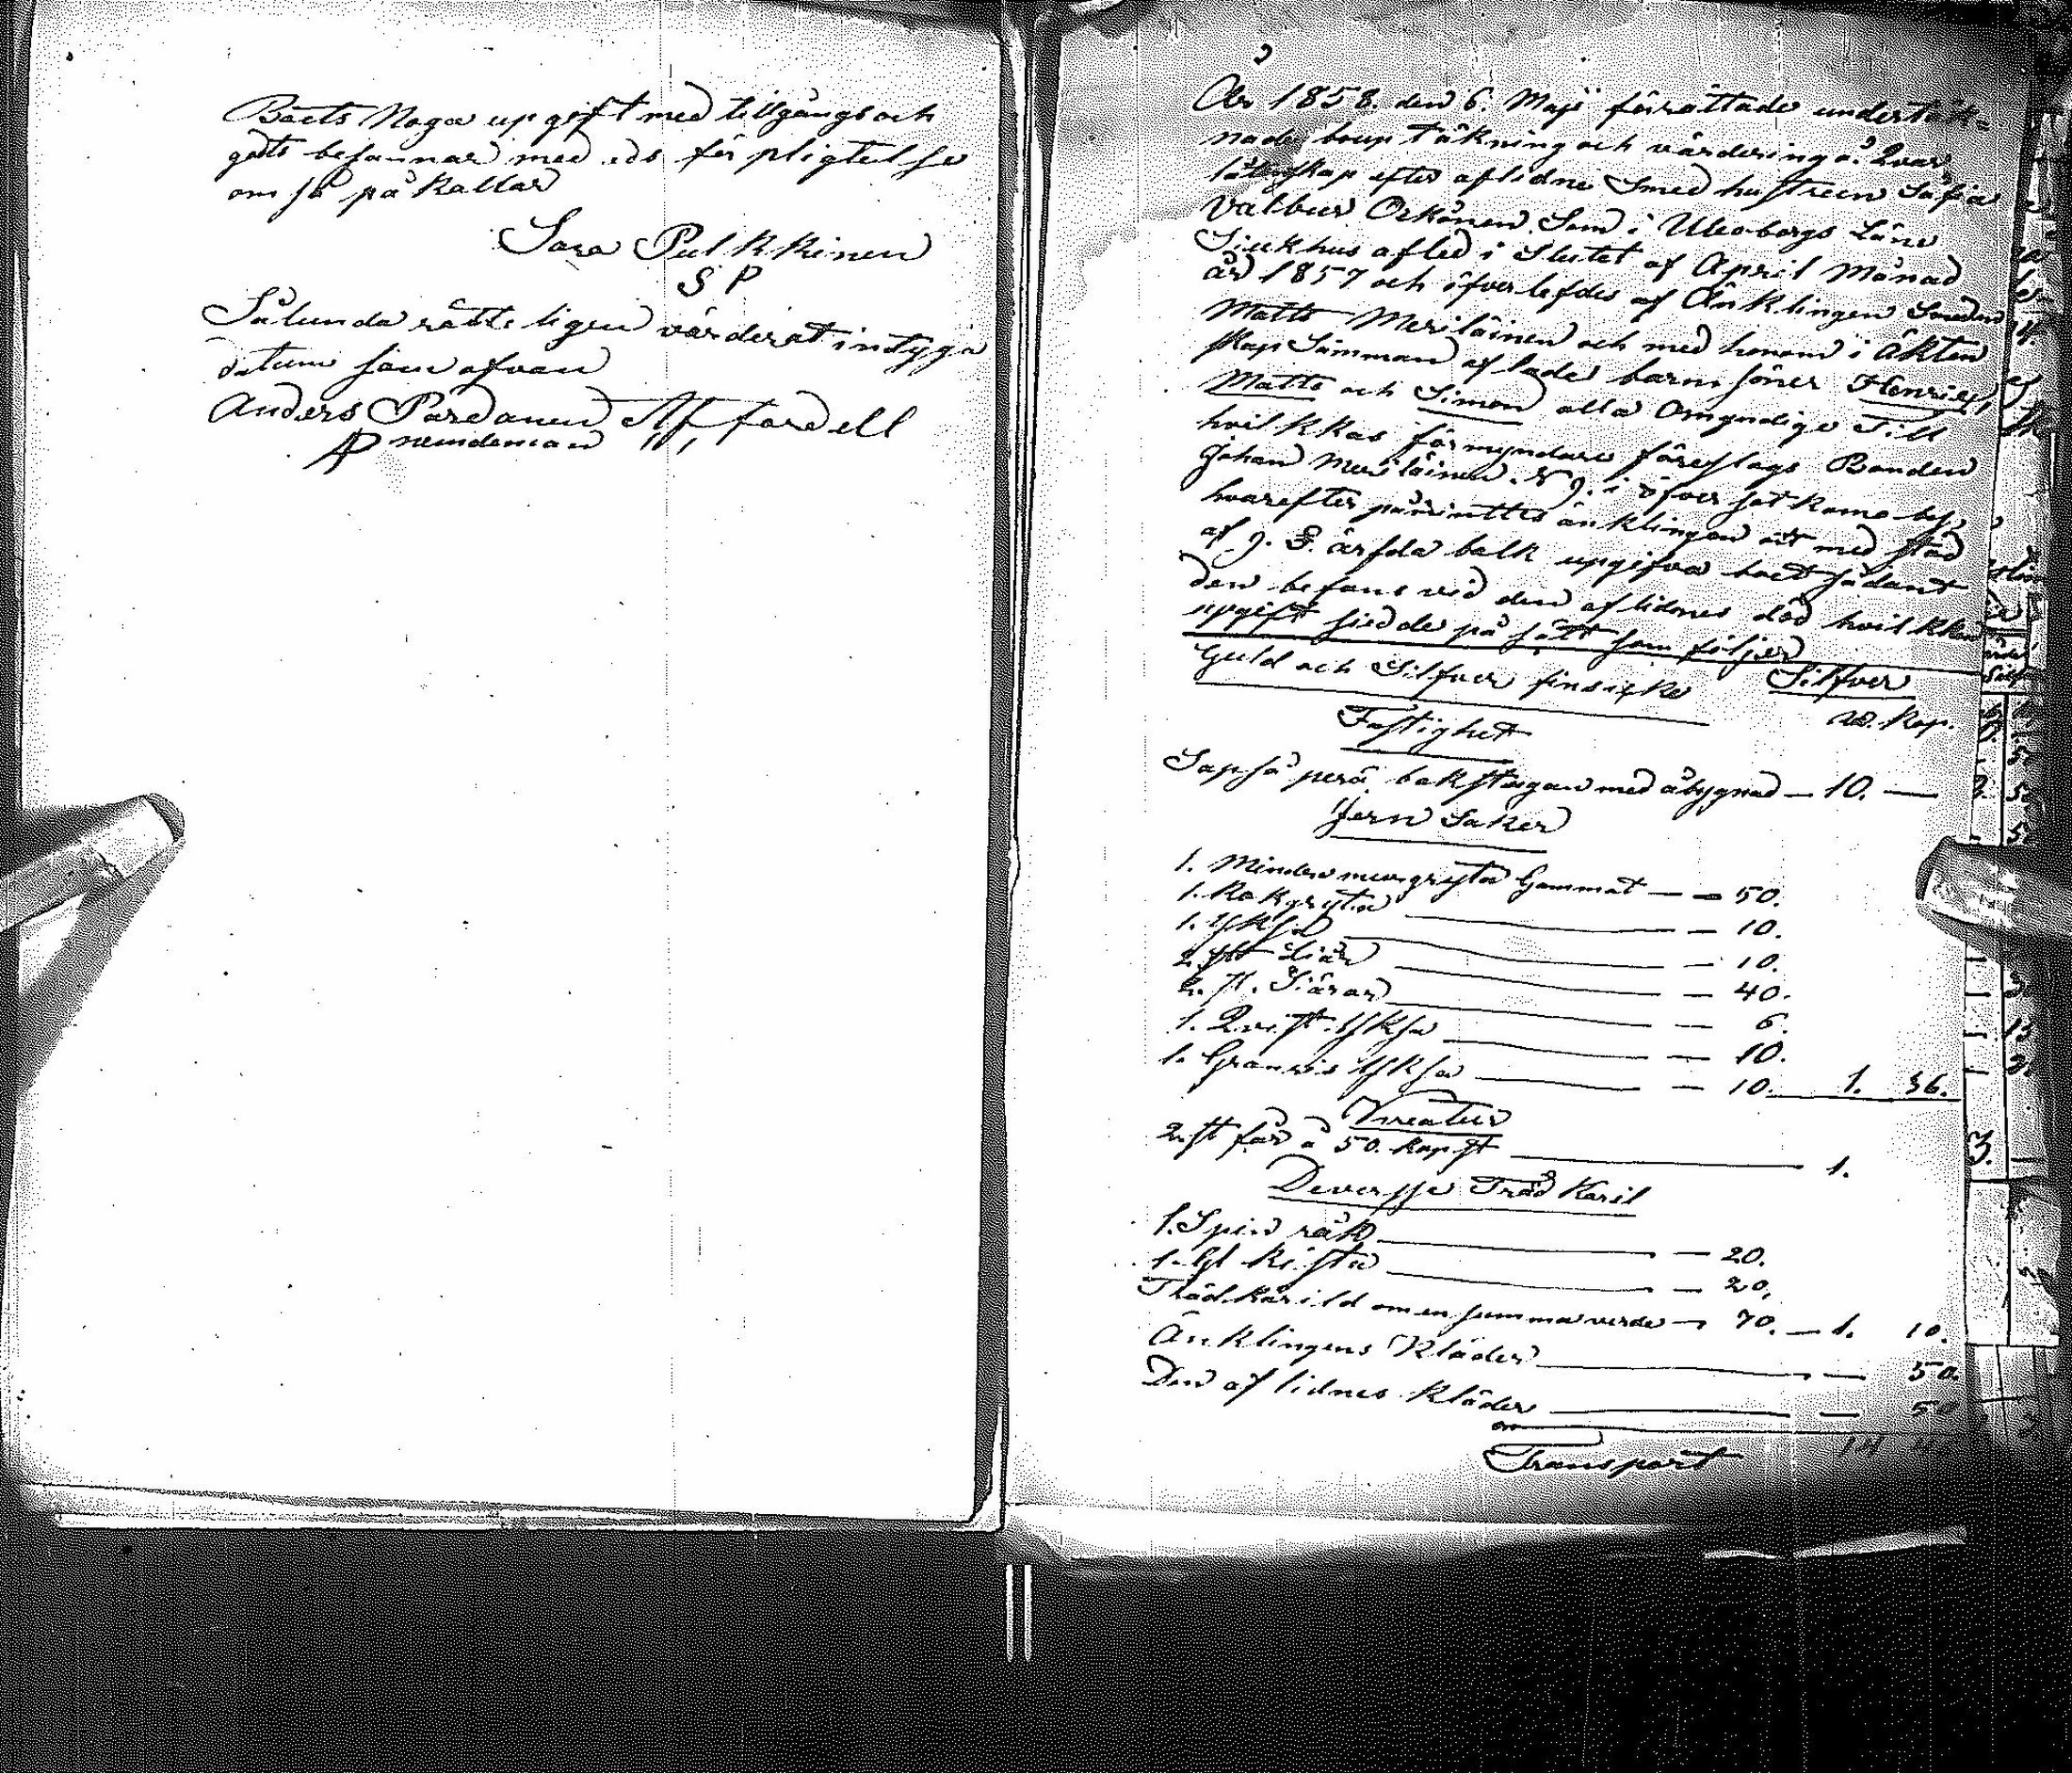 Boets Noga upgift med tillgångs och
gäts befannar med eds för pligtelse
om så på kallar
Sara Pulkkinen
S P
Sålunda rätteligen värderat intyga
datum som ofvan
Anders Pardanen
AP nemdeman
År 1858. den 6. Maji förrättade undertäk-
nade boup täkning och värdering å qvar
låtenskap efter aflidne Smed hustrun Sofia
Valbur Orkönen Som i Uleoborgs Läns
Siukhus afled i Slutet af April Månad
år 1857 och öfverlefdes af Änklingen Smeden
Matts Meriläinen och med honom i äkten
skap Samman aflade barn söner Henrick,
Matts och Simon alla Omyndige Till
hvilkkas förmyndare föreslags Bonden
Johan Meriläinen. N 9. i
hvarefter påmintes änklingen att med stöd
af 9. C. ärfda balk upgifva boet sådant
den befans vid den aflidnes död hvilkken
upgift siedde på sätt som följer
Guld och Silfver finsicke Silfver
R. Kop.
Fastighet
Sapså perä bakstugan med åbygnad — 10. —
Jern Saker
1. Mindre murgryta Gammat — — 50.
1. Kokgryta — 10.
1. Yksa — 10.
2. st Liär — 40.
2. st. Siärar — 6.
1. Qvist Yksa — 10.
1. Granris Yksa — 10. 1. 36.
Kreatur
2. st får à 50. kop st 1.
Deversse Träd Karil
1. Spin råk — 20.
1. Gl kista — 20.
Trädkärild om en summa verde — 70. — 1. 10.
Änklingens Kläder — 50.
Den af lidnes Kläder — 50
Transport